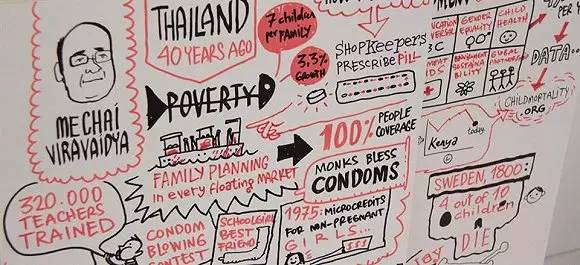 THAILAND
40 YEARS AGO
7 children
per FAMILY
3.3%
GROWTH
SHOPKeepers
PRESCRIBE PILL
POVERTY
MECHAÍ
VIRAVAIDYA
FAMILY PLANNING
in every floating MARKET
100% PEOPLE
COVERAGE
MONKS BLESS
CONDOMS
320.000
TEACHERS
TRAINED
CONDOM
BLOWING
CONTEST
SCHOOLGIRL
BEST
FRIEND
1975: MICROCREDITS
FOR NON-PREGNANT
GIRLS...
$$$
GENDER
EQUALITY
CHILD
HEALTH
PER Y
DATA
CHILDMORTALITY
.ORG
Kenya
today
SWEDEN, 1800:
4 out of 10
children
DIE